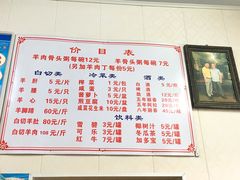 价目表
羊肉骨头粥每碗12元 羊骨头粥每碗7元
(另加羊肉丁每份5元)
白切类 冷菜类 酒类
羊肝 5元/片 榨菜 1元/包 白酒
羊腰 5元/只 咸蛋 3元/只 啤酒
羊心 15元/只 酱萝卜 5元/盆
羊脚 60元/斤 煎豆腐 10元/盆
白切羊肚 80元/斤
白切羊肉 100元/斤
饮料类
雪碧 3元/罐 椰树汁 5元/罐
可乐 3元/罐 冬瓜茶 5元/罐
红牛 7元/罐 加多宝 5元/罐